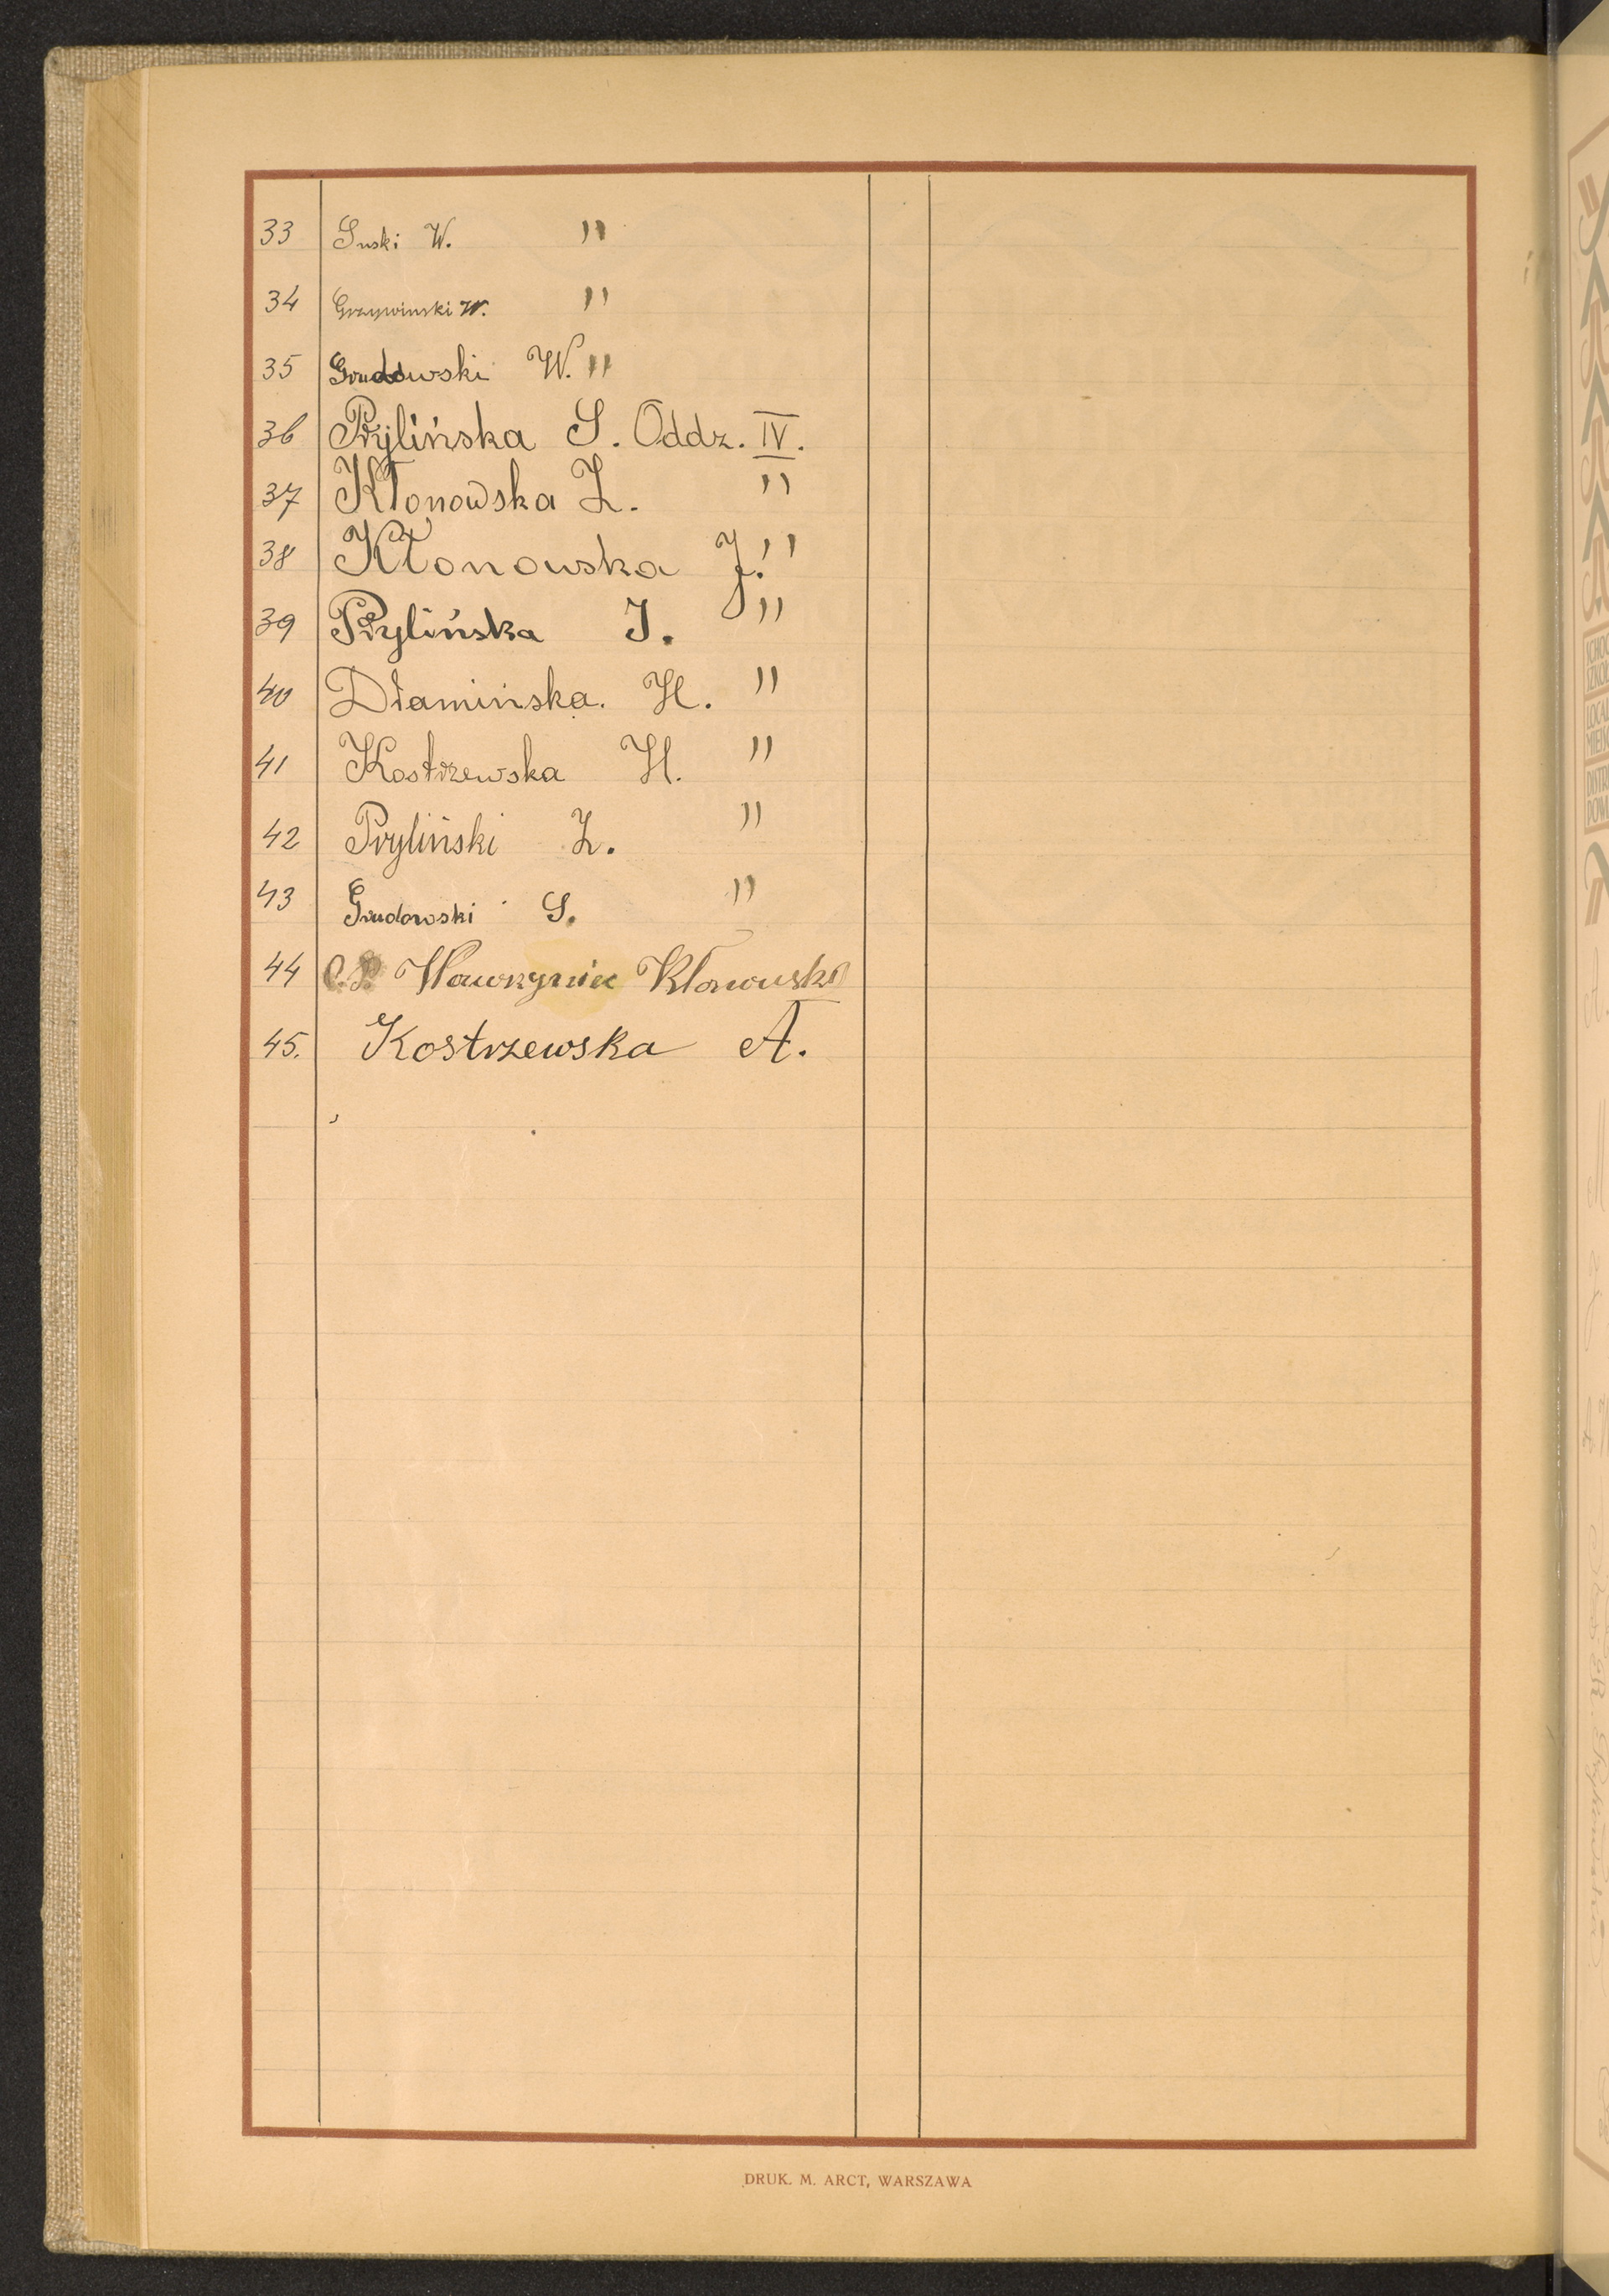 33 Suski W. "
34 Grzywinski W. "
35 Grudowski W. "
36 Prylińska S. Oddz. IV.
37 Kłonowska Z. "
38 Kłonowska J. "
39 Prylińska I. "
40 Dłamińska. H. "
41 Kostrzewska H. "
42 Pryliński Z. "
43 Grudowski S. "
44 Wawrzyniec Kłonowski
45. Kostrzewska A.
DRUK. M. ARCT, WARSZAWA